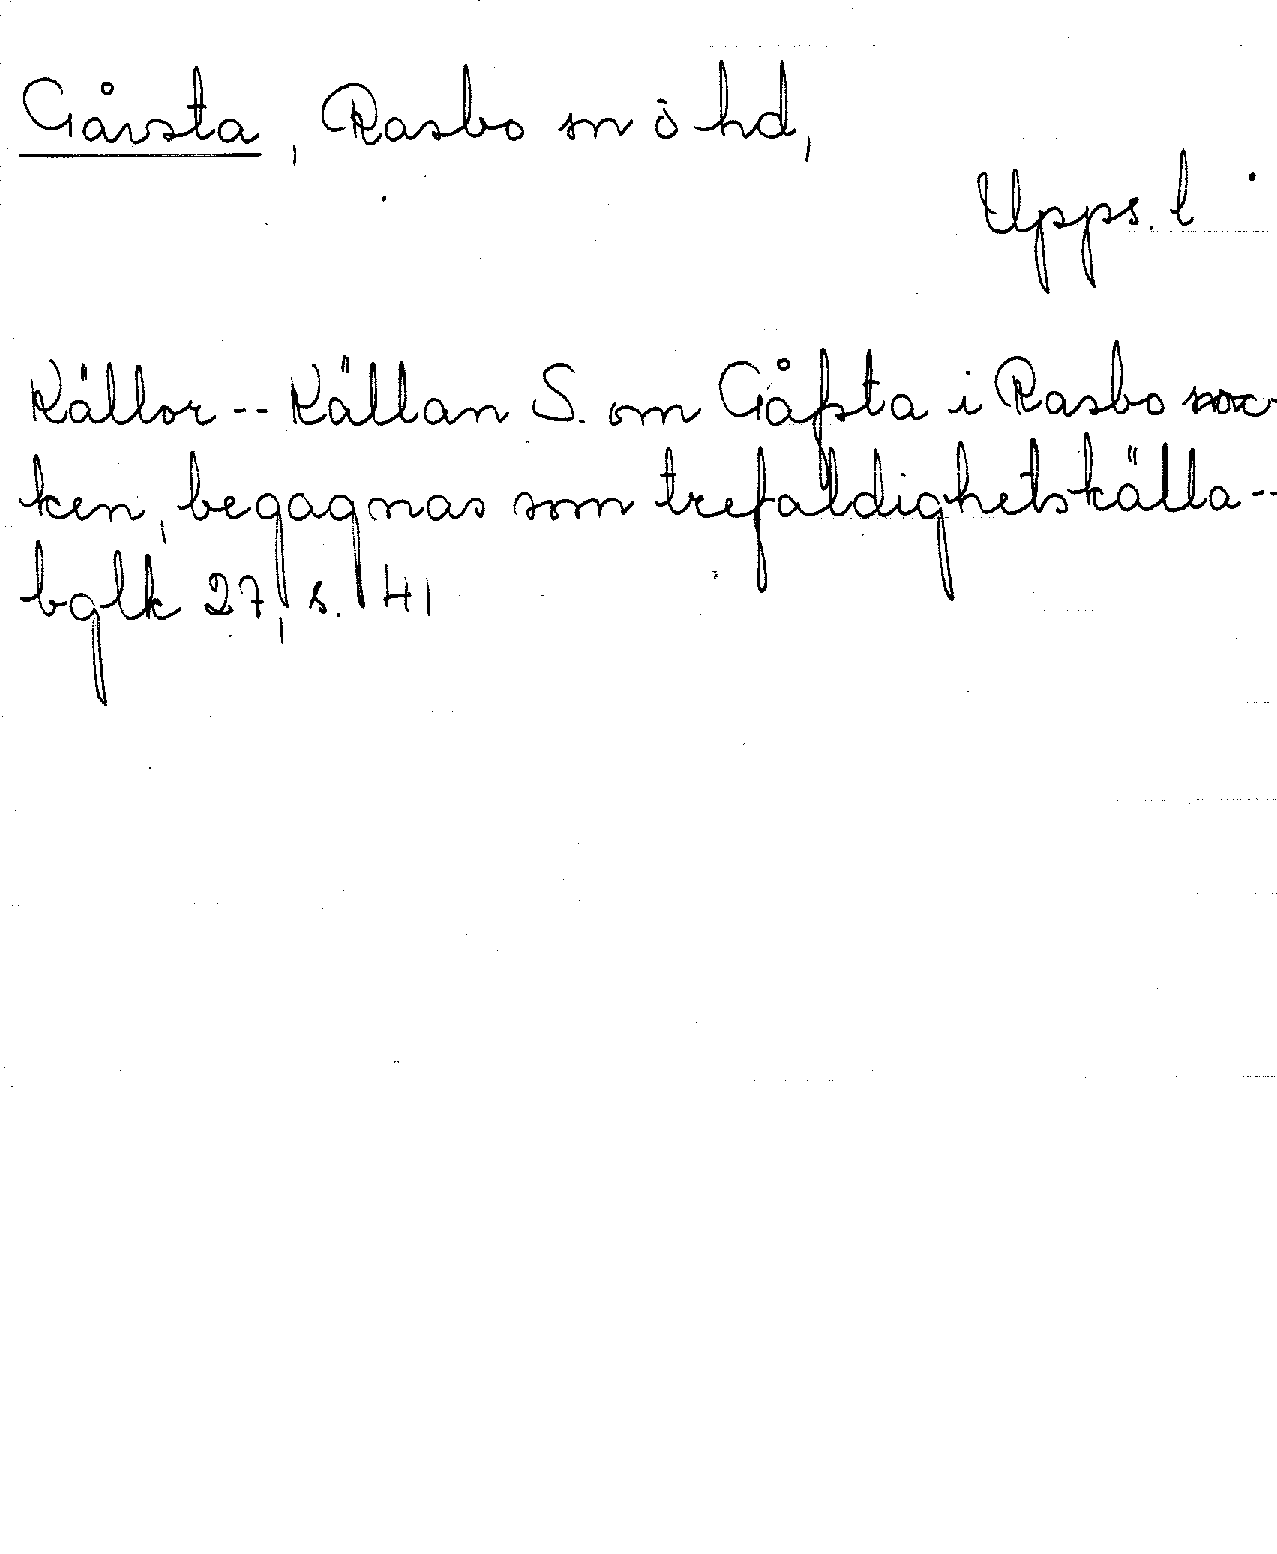 Gåvsta, Rasbo sn o hd,
Upps. l
Källor -- Källan S. om Gåfsta i Rasbo soc-
ken, begagnas som trefaldighetskälla --
bglk 27, s. 41